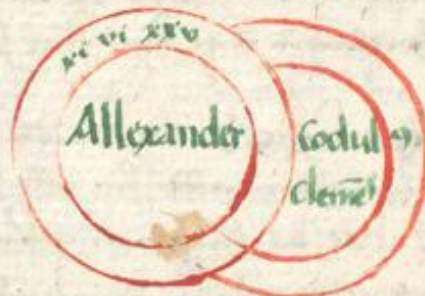 xi vi xxv
Allexander
Codulꝰ
clemēs